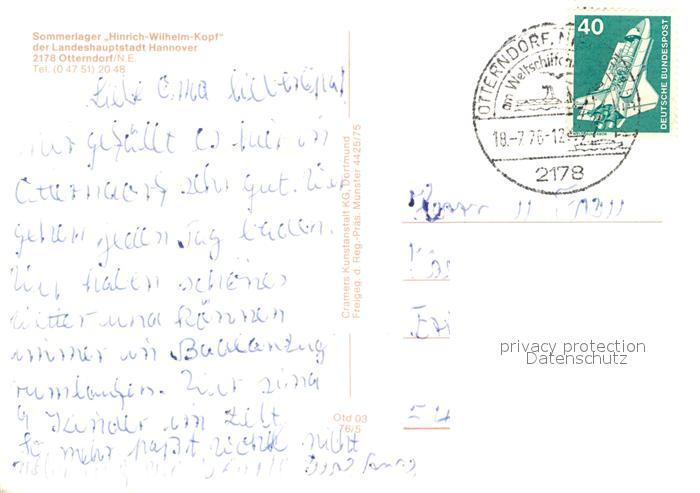 Sommerlager „Hinrich-Wilhelm-Kopf"
der Landeshauptstadt Hannover
2178 Otterndorf/N.E.
Tel. (0 47 51) 20 48
Liebe Oma lieber Opa!
Mir gefällt es hier in
Otterndorf sehr gut. Wir
gehen jeden Tag baden.
Wir haben schönes
Wetter und können
immer im Badeanzug
rumlaufen. Wir sind
9 Kinder im Zelt
So mehr paßt nicht
Cramers Kunstanstalt KG, Dortmund
Freigeg. d. Reg.-Präs. Münster 4425/75
Otd 03
76/5
OTTERNDORF, N
am Weltschiffa
18.-7.76-12
2178
40
DEUTSCHE BUNDESPOST
privacy protection
Datenschutz